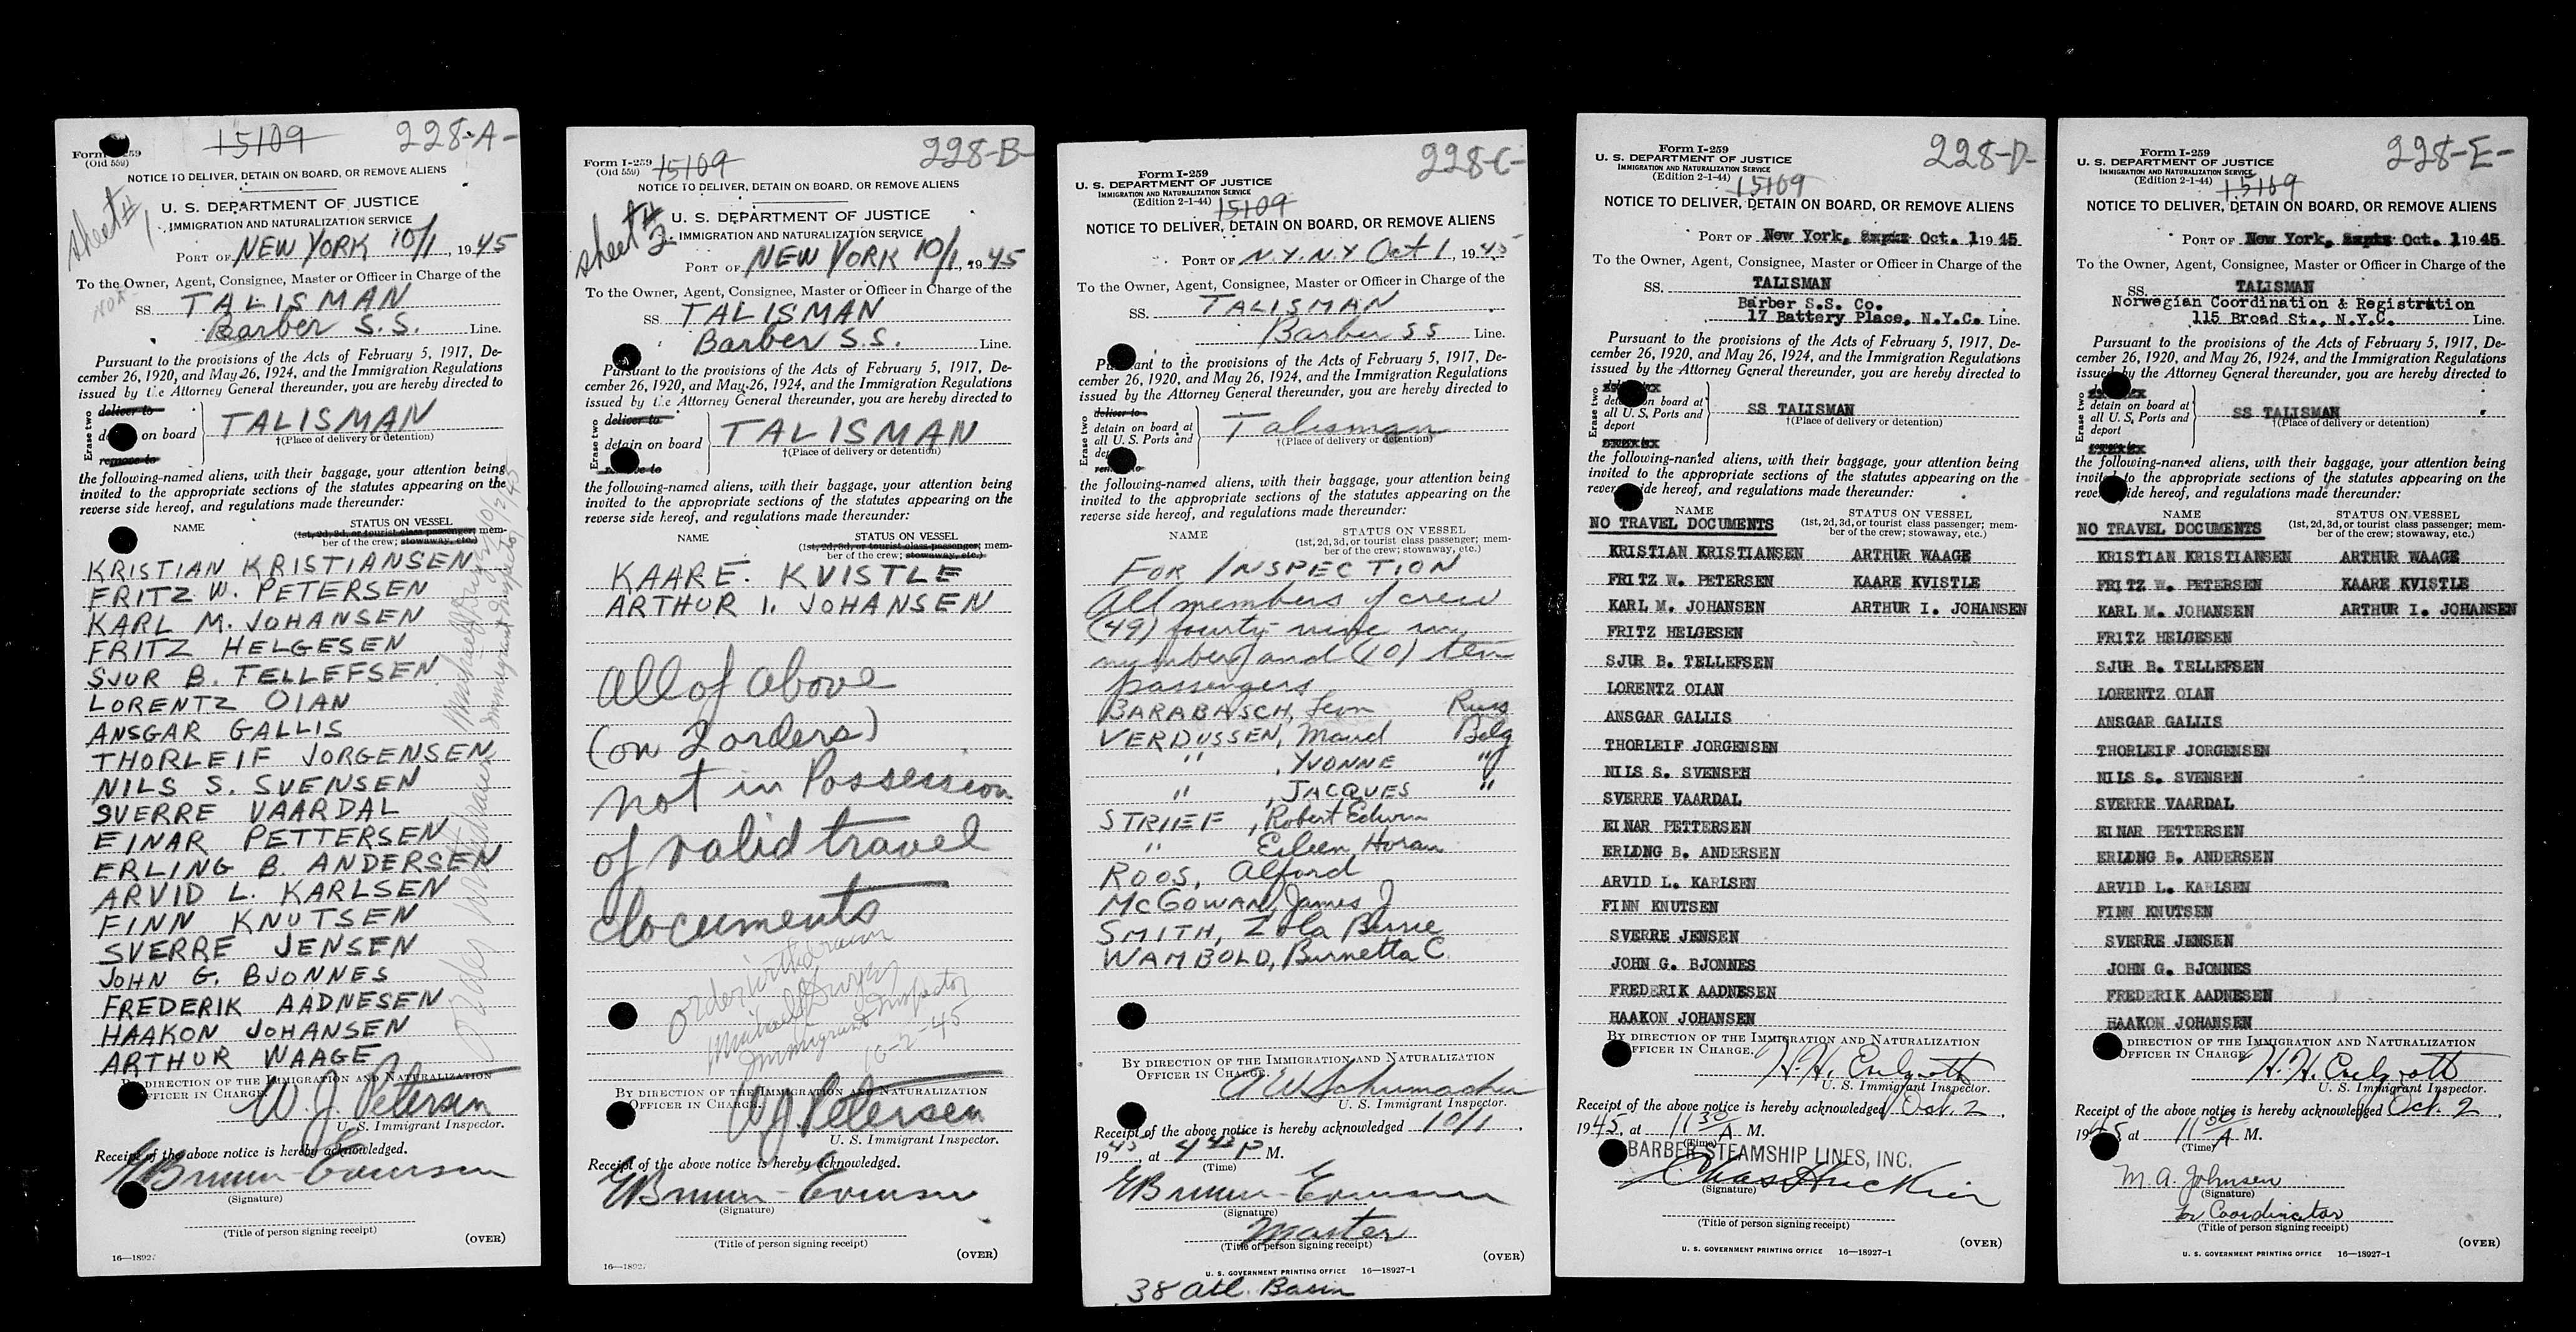 15109
228-A-
Form I-259
(Old 559)
NOTICE TO DELIVER, DETAIN ON BOARD, OR REMOVE ALIENS
sheet # 1
U. S. DEPARTMENT OF JUSTICE
IMMIGRATION AND NATURALIZATION SERVICE
PORT OF NEW YORK 10/1, 1945
To the Owner, Agent, Consignee, Master or Officer in Charge of the
SS. TALISMAN
Barber S.S. Line.
Pursuant to the provisions of the Acts of February 5, 1917, De-
cember 26, 1920, and May 26, 1924, and the Immigration Regulations
issued by the Attorney General thereunder, you are hereby directed to
Erase two
deliver to
on board
remove to
TALISMAN
†(Place of delivery or detention)
the following-named aliens, with their baggage, your attention being
invited to the appropriate sections of the statutes appearing on the
reverse side hereof, and regulations made thereunder:
NAME
STATUS ON VESSEL
(1st, 2d, 3d, or tourist class passenger; mem-
ber of the crew; stowaway, etc.)
KRISTIAN KRISTIANSEN
FRITZ W. PETERSEN
KARL M. JOHANSEN
FRITZ HELGESEN
SJUR B. TELLEFSEN
LORENTZ OIAN
ANSGAR GALLIS
THORLEIF JORGENSEN
NILS S. SVENSEN
SVERRE VAARDAL
EINAR PETTERSEN
ERLING B. ANDERSEN
ARVID L. KARLSEN
FINN KNUTSEN
SVERRE JENSEN
JOHN G. BJONNES
FREDERIK AADNESEN
HAAKON JOHANSEN
ARTHUR WAAGE
Order withdrawn
Immigrant Inspector
10/2/45
BY DIRECTION OF THE IMMIGRATION AND NATURALIZATION
OFFICER IN CHARGE.
W. J. Petersen
U. S. Immigrant Inspector.
Receipt of the above notice is hereby acknowledged.
(Signature)
(Title of person signing receipt)
(OVER)
16—18927
Form I-259
(Old 559)
15109
228-B-
NOTICE TO DELIVER, DETAIN ON BOARD, OR REMOVE ALIENS
sheet # 2
U. S. DEPARTMENT OF JUSTICE
IMMIGRATION AND NATURALIZATION SERVICE
PORT OF NEW YORK 10/1, 1945
To the Owner, Agent, Consignee, Master or Officer in Charge of the
SS. TALISMAN
Barber S.S. Line.
Pursuant to the provisions of the Acts of February 5, 1917, De-
cember 26, 1920, and May 26, 1924, and the Immigration Regulations
issued by the Attorney General thereunder, you are hereby directed to
Erase two
deliver to
detain on board
remove to
TALISMAN
†(Place of delivery or detention)
the following-named aliens, with their baggage, your attention being
invited to the appropriate sections of the statutes appearing on the
reverse side hereof, and regulations made thereunder:
NAME
STATUS ON VESSEL
(1st, 2d, 3d, or tourist class passenger; mem-
ber of the crew; stowaway, etc.)
KAARE. KVISTLE
ARTHUR I. JOHANSEN
All of above
(on 2 orders)
not in Possession
of valid travel
documents
Order withdrawn
Michael Dwyer
Immigrant Inspector
10-2-45
BY DIRECTION OF THE IMMIGRATION AND NATURALIZATION
OFFICER IN CHARGE.
W J Petersen
U. S. Immigrant Inspector.
Receipt of the above notice is hereby acknowledged.
(Signature)
(Title of person signing receipt)
(OVER)
16—18927
228-C-
Form I-259
U. S. DEPARTMENT OF JUSTICE
IMMIGRATION AND NATURALIZATION SERVICE
(Edition 2-1-44)
15109
NOTICE TO DELIVER, DETAIN ON BOARD, OR REMOVE ALIENS
PORT OF N.Y. N.Y Oct 1, 1945
To the Owner, Agent, Consignee, Master or Officer in Charge of the
SS. TALISMAN
Barber SS Line.
Pursuant to the provisions of the Acts of February 5, 1917, De-
cember 26, 1920, and May 26, 1924, and the Immigration Regulations
issued by the Attorney General thereunder, you are hereby directed to
Erase two
deliver to
detain on board at
all U. S. Ports and
deport
remove to
Talisman
†(Place of delivery or detention)
the following-named aliens, with their baggage, your attention being
invited to the appropriate sections of the statutes appearing on the
reverse side hereof, and regulations made thereunder:
NAME
STATUS ON VESSEL
(1st, 2d, 3d, or tourist class passenger; mem-
ber of the crew; stowaway, etc.)
FOR INSPECTION
All members of crew
(49) fourty-nine in
number and (10) ten
passengers
BARABASCH, Russ
VERDUSSEN, Maud Belg
" , YVONNE "
" , JACQUES "
STRIIEF, Robert Edwin
" Eileen Horan
ROOS, Alford
McGOWAN, James J
SMITH, Zola
WAMBOLD, Burnetta C.
BY DIRECTION OF THE IMMIGRATION AND NATURALIZATION
OFFICER IN CHARGE.
A W Schumacher
U. S. Immigrant Inspector.
Receipt of the above notice is hereby acknowledged 10/1,
1945, at 4 45 P M.
(Time)
(Signature)
Master
(Title of person signing receipt)
(OVER)
U. S. GOVERNMENT PRINTING OFFICE 16—18927-1
38 Atl. Basin
228-D-
Form I-259
U. S. DEPARTMENT OF JUSTICE
IMMIGRATION AND NATURALIZATION SERVICE
(Edition 2-1-44)
15109
NOTICE TO DELIVER, DETAIN ON BOARD, OR REMOVE ALIENS
PORT OF New York, Oct. 1 1945
To the Owner, Agent, Consignee, Master or Officer in Charge of the
SS. TALISMAN
Barber S.S. Co.
17 Battery Place, N.Y.C. Line.
Pursuant to the provisions of the Acts of February 5, 1917, De-
cember 26, 1920, and May 26, 1924, and the Immigration Regulations
issued by the Attorney General thereunder, you are hereby directed to
Erase two
detain on board at
all U. S. Ports and
deport
SS TALISMAN
†(Place of delivery or detention)
the following-named aliens, with their baggage, your attention being
invited to the appropriate sections of the statutes appearing on the
reverse side hereof, and regulations made thereunder:
NAME
STATUS ON VESSEL
(1st, 2d, 3d, or tourist class passenger; mem-
ber of the crew; stowaway, etc.)
NO TRAVEL DOCUMENTS
KRISTIAN KRISTIANSEN ARTHUR WAAGE
FRITZ W. PETERSEN KAARE KVISTLE
KARL M. JOHANSEN ARTHUR I. JOHANSEN
FRITZ HELGESEN
SJUR B. TELLEFSEN
LORENTZ OIAN
ANSGAR GALLIS
THORLEIF JORGENSEN
NILS S. SVENSEN
SVERRE VAARDAL
EINAR PETTERSEN
ERLDNG B. ANDERSEN
ARVID L. KARLSEN
FINN KNUTSEN
SVERRE JENSEN
JOHN G. BJONNES
FREDERIK AADNESEN
HAAKON JOHANSEN
BY DIRECTION OF THE IMMIGRATION AND NATURALIZATION
OFFICER IN CHARGE.
U. S. Immigrant Inspector.
Receipt of the above notice is hereby acknowledged Oct. 2,
1945, at 11 30 A M.
(Time)
BARBER STEAMSHIP LINES, INC.
(Signature)
(Title of person signing receipt)
(OVER)
U. S. GOVERNMENT PRINTING OFFICE 16—18927-1
228-E-
Form I-259
U. S. DEPARTMENT OF JUSTICE
IMMIGRATION AND NATURALIZATION SERVICE
(Edition 2-1-44)
15109
NOTICE TO DELIVER, DETAIN ON BOARD, OR REMOVE ALIENS
PORT OF New York, Oct. 1 1945
To the Owner, Agent, Consignee, Master or Officer in Charge of the
SS. TALISMAN
Norwegian Coordination & Registration
115 Broad St., N.Y.C. Line.
Pursuant to the provisions of the Acts of February 5, 1917, De-
cember 26, 1920, and May 26, 1924, and the Immigration Regulations
issued by the Attorney General thereunder, you are hereby directed to
Erase two
detain on board at
all U. S. Ports and
deport
SS TALISMAN
†(Place of delivery or detention)
the following-named aliens, with their baggage, your attention being
invited to the appropriate sections of the statutes appearing on the
reverse side hereof, and regulations made thereunder:
NAME
STATUS ON VESSEL
(1st, 2d, 3d, or tourist class passenger; mem-
ber of the crew; stowaway, etc.)
NO TRAVEL DOCUMENTS
KRISTIAN KRISTIANSEN ARTHUR WAAGE
FRITZ W. PETERSEN KAARE KVISTLE
KARL M. JOHANSEN ARTHUR I. JOHANSEN
FRITZ HELGESEN
SJUR B. TELLEFSEN
LORENTZ OIAN
ANSGAR GALLIS
THORLEIF JORGENSEN
NILS S. SVENSEN
SVERRE VAARDAL
EINAR PETTERSEN
ERLDNG B. ANDERSEN
ARVID L. KARLSEN
FINN KNUTSEN
SVERRE JENSEN
JOHN G. BJONNES
FREDERIK AADNESEN
HAAKON JOHANSEN
BY DIRECTION OF THE IMMIGRATION AND NATURALIZATION
OFFICER IN CHARGE.
U. S. Immigrant Inspector.
Receipt of the above notice is hereby acknowledged Oct. 2,
1945, at 11 30 A M.
(Time)
M. A. Johnsen
(Signature)
for Coordinator
(Title of person signing receipt)
(OVER)
U. S. GOVERNMENT PRINTING OFFICE 16—18927-1